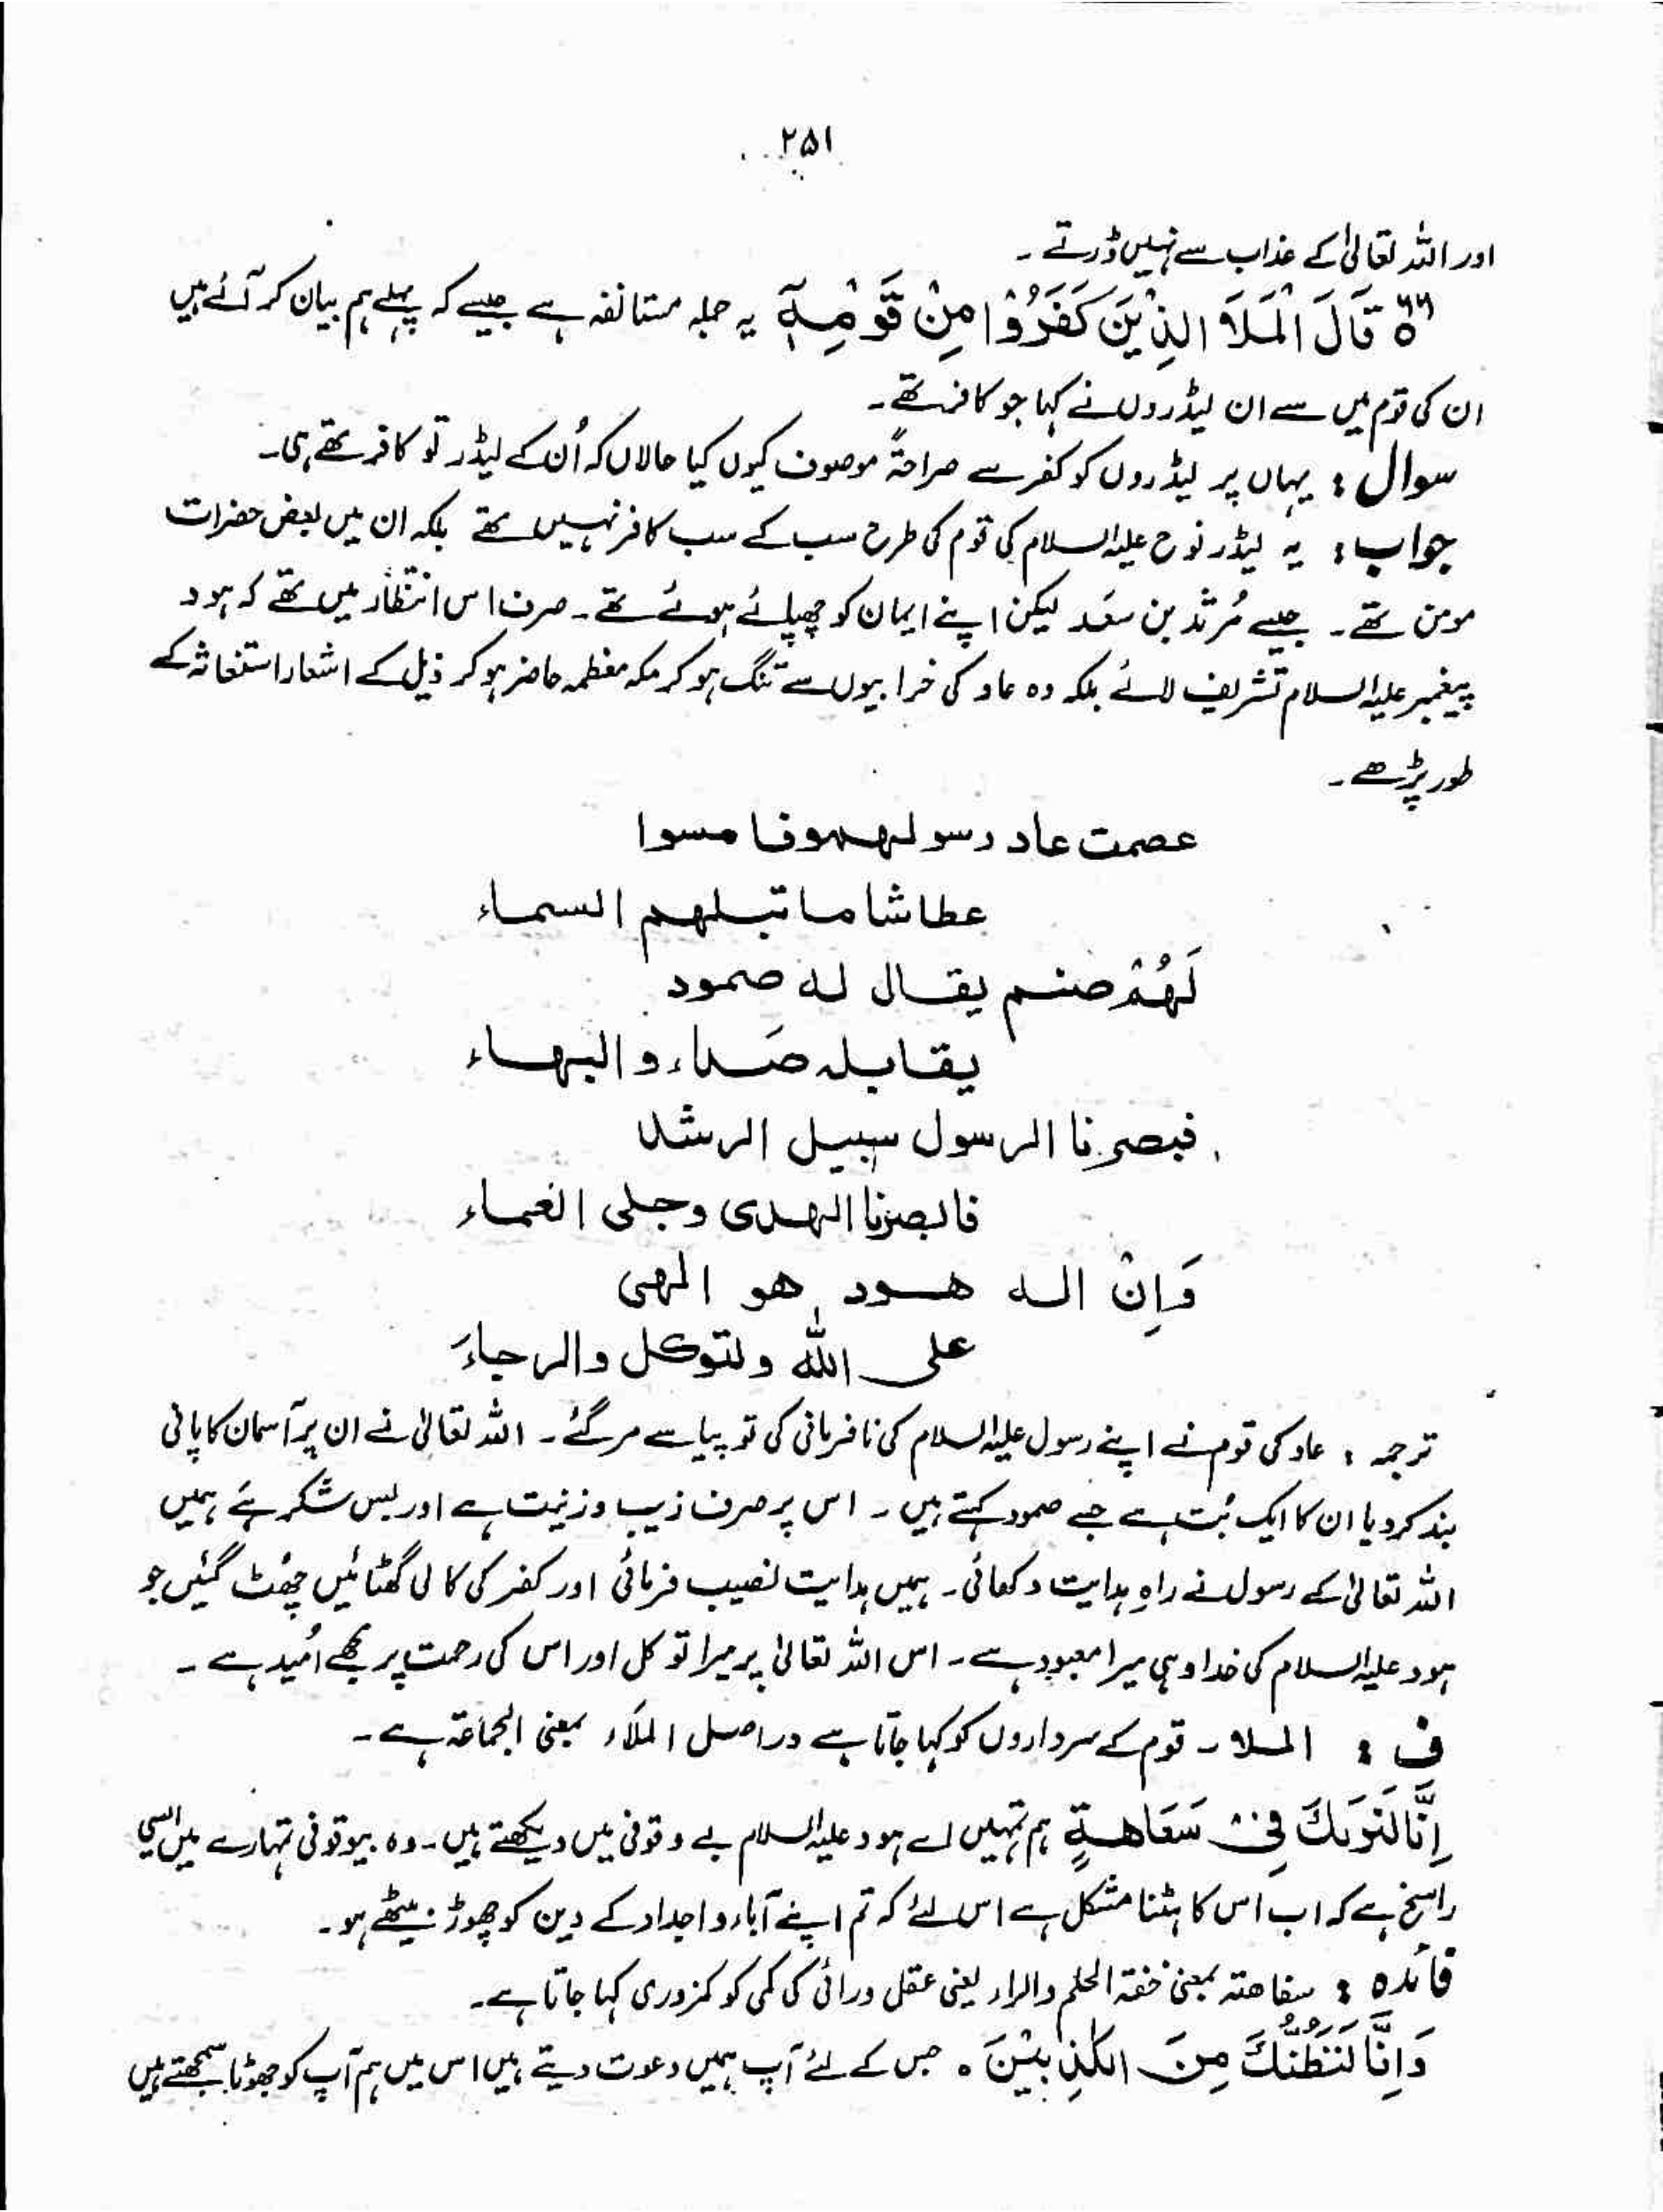 ۲۵۱
اور اللہ تعالیٰ کے عذاب سے نہیں ڈرتے ۔
قَالَ الْمَلَاَ الذِيْنَ كَفَرُوْا مِنْ قَوْمِهٖٓ یہ جملہ مستانفہ ہے جیسے کہ پہلے ہم بیان کر آئے ہیں
ان کی قوم میں سے ان لیڈروں نے کہا جو کافر تھے ۔
سوال : یہاں پر لیڈروں کو کفر سے صراحۃً موصوف کیوں کیا حالاں کہ اُن کے لیڈر تو کافر تھے ہی ۔
جواب : یہ لیڈر نوح علیہ السلام کی قوم کی طرح سب کے سب کافر نہیں تھے بلکہ ان میں بعض حضرات
مومن تھے ۔ جیسے مُرثد بن سعَد لیکن اپنے ایمان کو چھپائے ہوئے تھے ۔ صرف اس انتظار میں تھے کہ ہود
پیغمبر علیہ السلام تشریف لائے بلکہ وہ عاد کی خرابیوں سے تنگ ہو کر مکہ معظمہ حاضر ہو کر ذیل کے اشعار استغاثہ کے
طور پڑھے ۔
عصمت عاد رسولهموفا مسوا
عطاشا ما تبلهم السماء
لَهُمْ صنم يقال له صمود
يقابله صَداء و البهاء
فبصرنا الرسول سبيل الرشد
فابصرنا الهدى وجلى العماء
وَاِنْ اله هود هو الهى
على الله ولتوكل والرجاءَ
ترجمہ : عاد کی قوم نے اپنے رسول علیہ السلام کی نافرمانی کی تو پیاسے مر گئے ۔ اللہ تعالیٰ نے ان پر آسمان کا پانی
بند کر دیا ان کا ایک بُت ہے جسے صمود کہتے ہیں ۔ اس پر صرف زیب و زینت ہے اور بس شکر ہے ہمیں
اللہ تعالیٰ کے رسول نے راہِ ہدایت دکھائی ۔ ہمیں ہدایت نصیب فرمائی اور کفر کی کالی گھٹائیں چھٹ گئیں جو
ہود علیہ السلام کی خدا وہی میرا معبود ہے ۔ اس اللہ تعالیٰ پر میرا توکل اور اس کی رحمت پر مجھے اُمید ہے ۔
ف : الملاء ۔ قوم کے سرداروں کو کہا جاتا ہے دراصل الملَاء بمعنی الجماعۃ ہے ۔
اِنَّا لَنَرٰىكَ فِیْ سَفَاهَةٍ ہم تمہیں اے ہود علیہ السلام بے وقوفی میں دیکھتے ہیں ۔ وہ بیوقوفی تمہارے میں ایسی
راسخ ہے کہ اب اس کا ہٹنا مشکل ہے اس لئے کہ تم اپنے آباء و اجداد کے دین کو چھوڑ بیٹھے ہو ۔
فائدہ : سفاھتہ بمعنی خفۃ الحلم والراء یعنی عقل و رائی کی کمی کو کمزوری کہا جاتا ہے ۔
وَاِنَّا لَنَظُنُّكَ مِنَ الْكٰذِبِيْنَ ۔ جس کے لئے آپ ہمیں دعوت دیتے ہیں اس میں ہم آپ کو جھوٹا سمجھتے ہیں